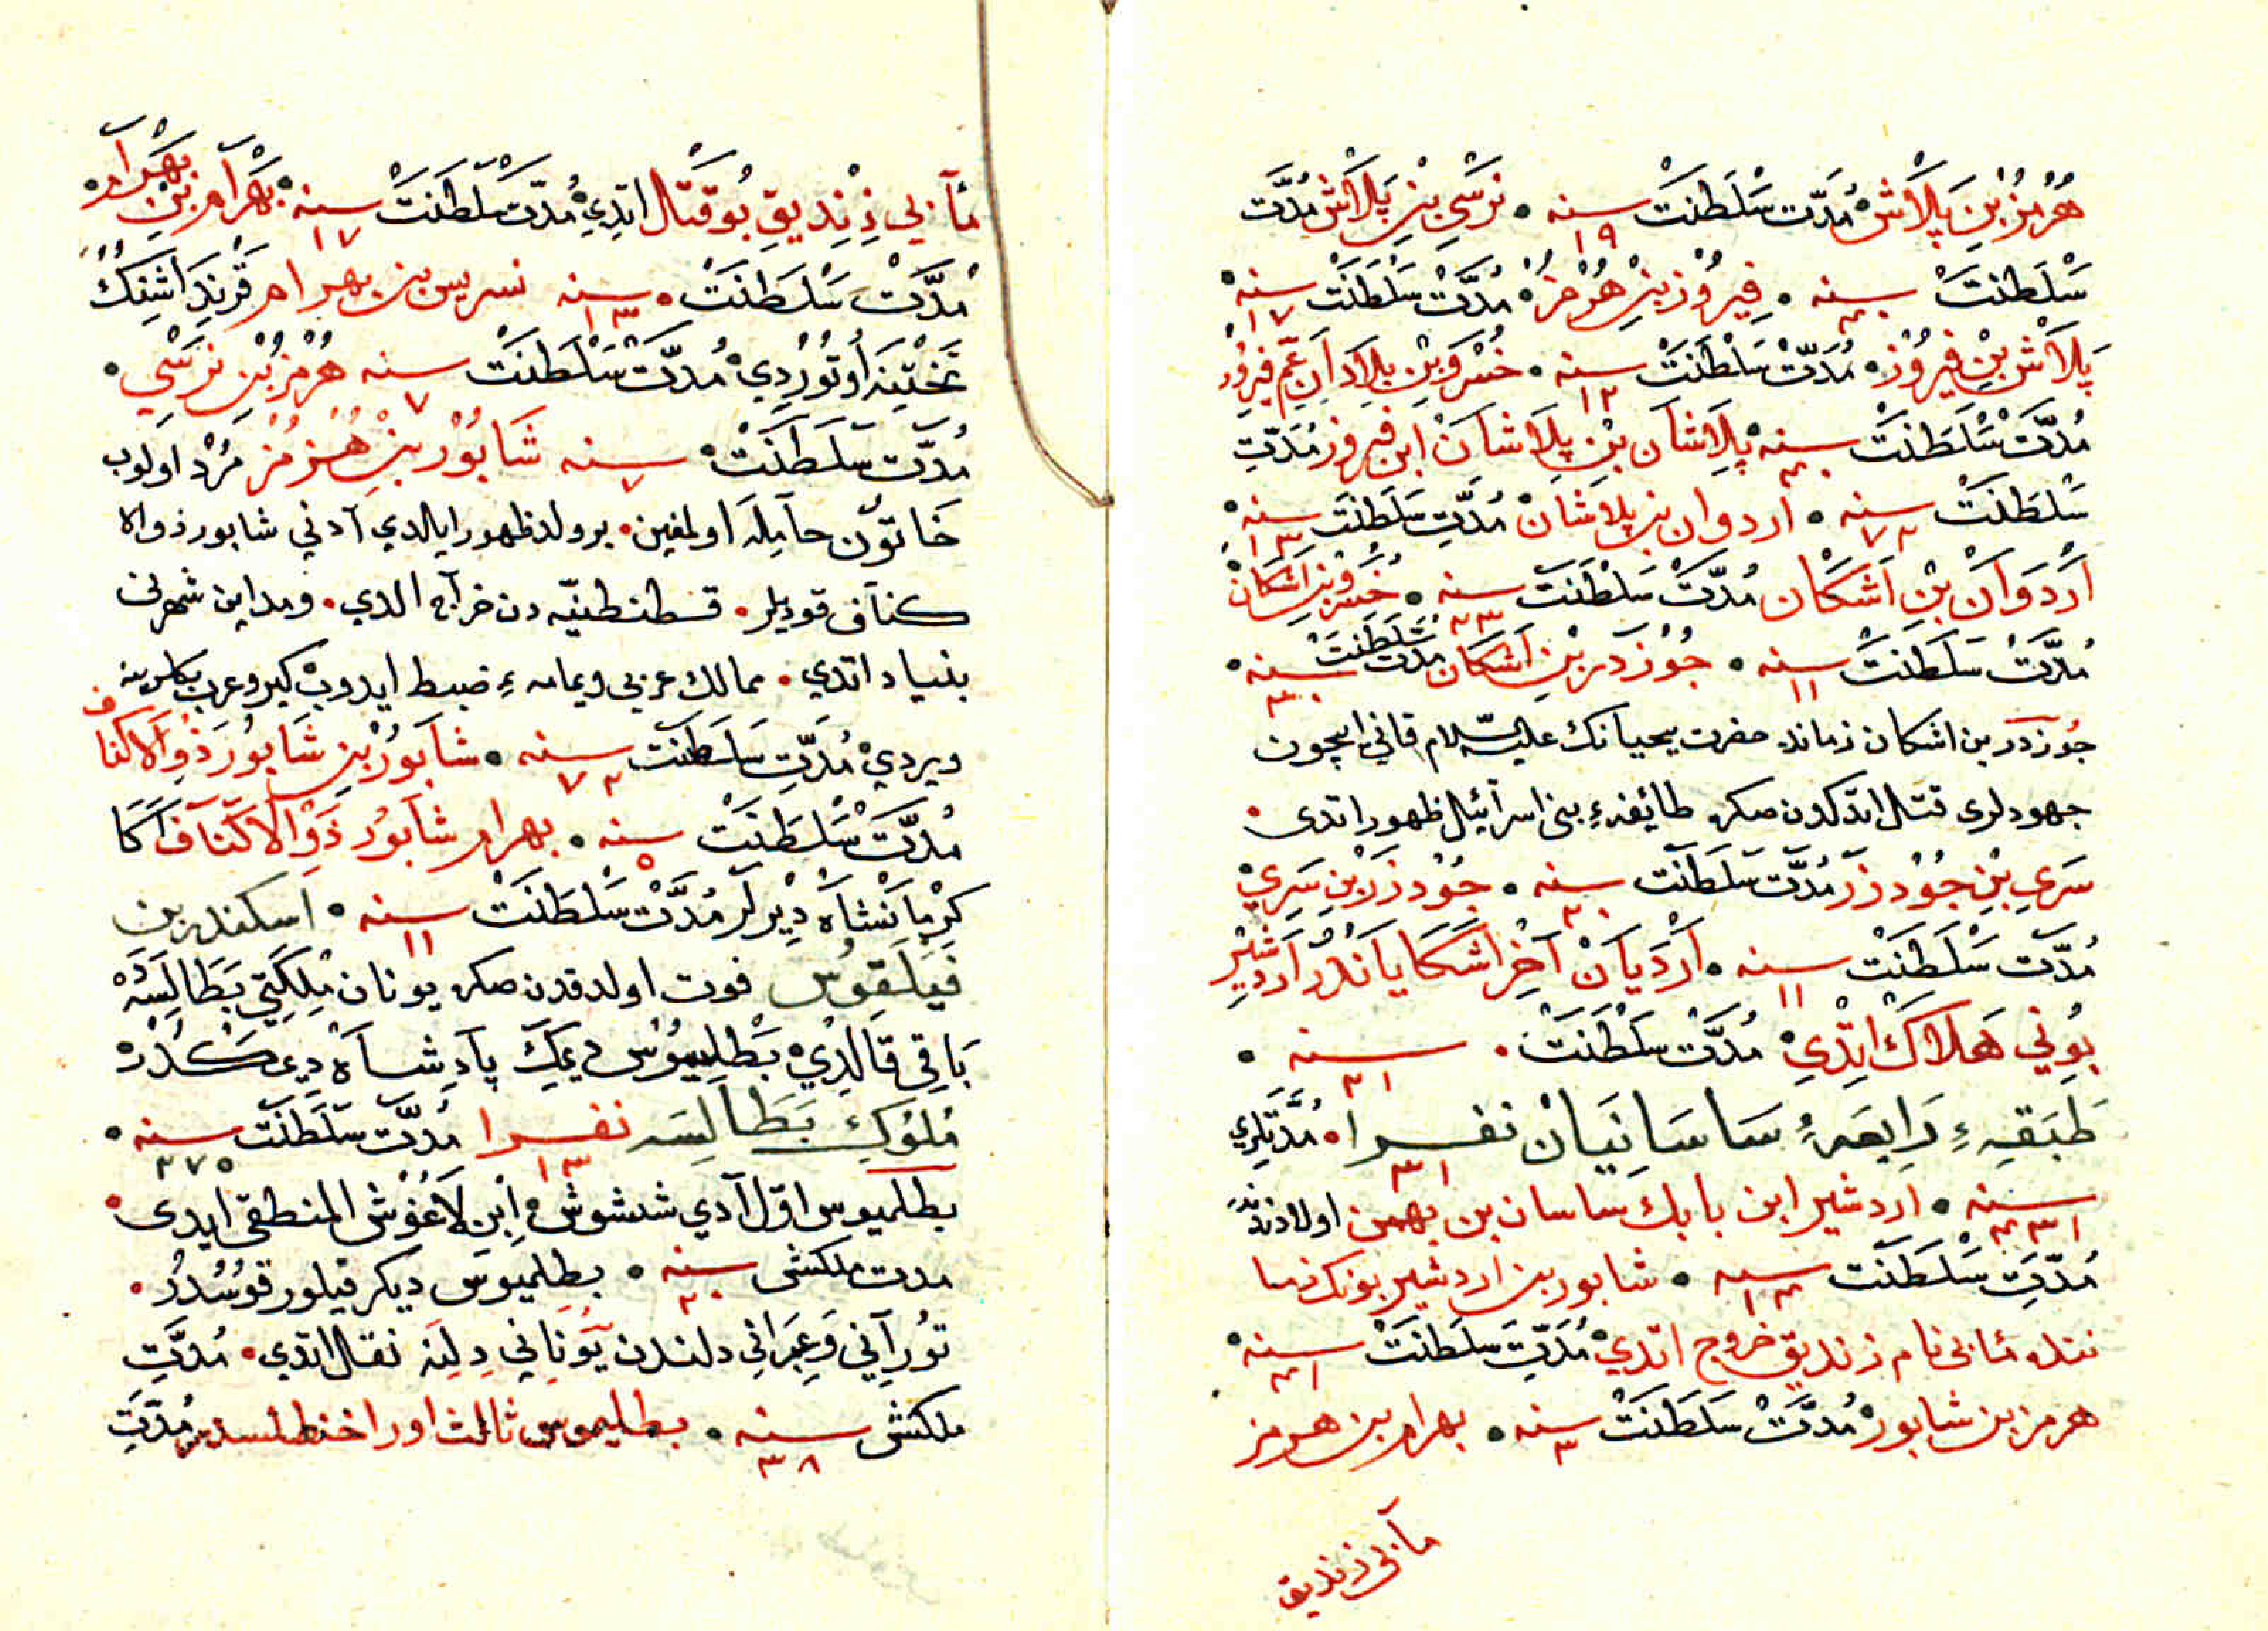 هُرْمُزْ بْنِ پَلَاشْ مُدَّت سَلْطَنَتْ سنه ١٩ نَرْسَى بْنِ پَلَاشْ مُدَّت
سَلْطَنَتْ سنه ٤٠ فِيرُوْز بْنِ هُرْمُزْ مُدَّتْ سَلْطَنَتْ سنه ١٧
پَلَاشْ بْنِ فِيرُوْز مُدَّتْ سَلْطَنَتْ سنه ١٢ خُسْرَوْ بْنِ پِلَادَانِ عَمِّ فِيرُوْز
مُدَّتْ سَلْطَنَتْ سنه ٤٠ پِلَاشَان بْنِ پِلَاشَانْ ابن فيروز مُدَّتِ
سَلْطَنَتْ سنه ٢٧ اردوان بن پِلَاشَانْ مُدَّتِ سَلْطَنَتْ سنه ١٣
اَرْدَوَانْ بْنِ اَشْكَان مُدَّتْ سَلْطَنَتْ سنه ٢٣ خُسْرَوْ بْنِ اَشْكَانْ
مُدَّتْ سَلْطَنَتْ سنه ١١ جُوْزدَر بْنِ اَشْكَان مُدَّت سَلْطَنَتْ سنه ٣٠
جوزدر بن اشكان زمانده حضرت يحييانك عليه السلام قانى ايچون
جهودلرى قتل اتدكدن صكره طائفهء بنى اسرآئيل ظهور اتدى
سَرِي بْنِ جُوْدرَزْ مُدَّت سَلْطَنَت سنه ٢٠ جُوْدرَزْ بْنِ سَرِيْ
مُدَّت سَلْطَنَتْ سنه ١١ اَرْدَيَانْ آخِرْ اَشْكَايَانْدُرْ اَرْدَشِيْرْ
بُونِي هَلَاكْ اِتْدِيْ مُدَّتْ سَلْطَنَتْ سنه ٣١
طَبَقِهءِ رَابِعَهءُ سَاسَانِيَانْ نفرا ٣١ مُدَّتْلَرِي
سنه ٤٣١ اردشير ابن بابك ساسان بن بهمن اولادندندر
مُدَّتِ سَلْطَنَت سنه ١٤ شابور بن اردشير بونك زما
ننده مانى نام زنديق خروج اتدِيْ مُدَّتِ سَلْطَنَتْ سنه ٣١
هرمز بن شابور مُدَّتْ سَلْطَنَتْ سنه ٣ بهرام بن هرمز
مآنى زنديق
مآنِي زِنْدِيقِ بُو قَتْل اتدِيْ مُدّت سَلْطَنَتْ سنه ١٧ بَهْرَام بْنِ بَهْرَام
مُدَّتْ سَلْطَنَتْ سنه ١٣ نسريس بن بهرام قَرِنْدَاشِنِكْ
تَخْتِنَه اُوتُوْرْدِيْ مُدَّتْ سَلْطَنَتْ سنه ٧ هُرْمُزْ بْنِ نَرْسِيْ
مُدَّت سَلْطَنَتْ سنه ٧ شَابُوْر بْنِ هُرْمُز مُرْد اولوب
خَاتُون حامِلَه اولمغين برولد ظهورايلدي آدنى شابور ذوالا
كتاف قوديلر قسطنطنيّه دن خراج الدي ومداين شهرنى
بنياد اتدي ممالك عربى ويمامهءِ ضبط ايدوب كيرو عرب بكلرينه
ويردِيْ مُدَّتِ سَلْطَنَت سنه ٧٢ شابُور بْنِ شَابُور ذُوالاكتاف
مُدَّتْ سَلْطَنَت سنه ٥ بهرام شابُور ذُوالاكْتَاف اَكَا
كِرْمَانْشَاه دِيْرلَر مُدَّتْ سَلْطَنَتْ سنه ١١ اسكندر بن
فَيْلَقُوْس فوت اولدقدن صكره يونان مُلكَتِي بَطَالِسَه
بَاقِي قَالدِيْ بَطْلِيموُس ديمك پادِشاه دِيمكدُر
مُلُوكِ بَطَالِسَه نفرا ١٣ مُدَّت سَلْطَنَت سنه ٢٧٥
بطلميوس اوّل آدي شسشوش اِبْنِ لَاغُوْش المنطقى ايدى
مدت ملكشى سنه ٢٠ بطلميوس ديكر فيلور قوسُدُر
تُورآنِي وَعِبْرَانِي دلندن يُونَانِي دِلِنَه نقل اتدي مُدَّتِ
ملكشى سنه ٣٨ بطليموس ثالث مُدَّتِ